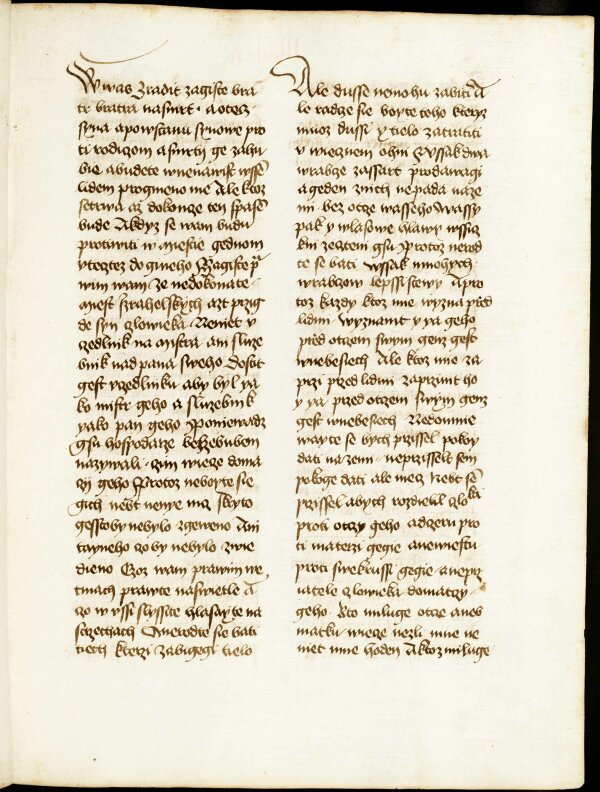 W was Zradit zagiste bra
tr bratra nasmrt · a otecz ·
syna apowstanu synowe pro
ti rodiczom a smrti ge zahu
bie abudete wnenawist wssē
lidem progmeno me Ale ktoz
setrwa az dokoncze ten spasē
bude Akdyz se wam budu
protiwiti w miestie gednom
vteczte z do gineho Zagiste p̄
wim wam · ze nedokonate ·
miest Izrahelskych azt przig
de syn czlowieka · Nenie v
czedlnik na mistra · ani sluze
bnik nad pana sweho Dosit
gest vczedlniku aby byl ya
ko mistr geho a sluzebnik
yako pan geho Poniewadz
gsu hospodarze belzebubem
nazywali · czim wiecze doma
czi geho Protoz neboyte sie
gich nebt nenye nicz skryto
gessto by nebylo zgeweno Ani
tayneho czo by nebylo zwie
dieno Czoz wam prawim we
tmach prawte naswietle A
czo w vssi slyssite hlasayte na
strzechach A nerodte sie bati
tiech kterzi zabigegi tielo
Ale dusse nemohu zabiti A
le radze sie boyte toho kterz
muoz dussi y tielo zatratiti
v wiecznem ohni Y wssak dwa
wrabcze za ssart prodawagi
a geden z nich nepada na ze
mi · bez otcze wasseho Wassy
pak y wlasowe hlawy wssicz
kni zcztem gsu Protoz nerod
te se bati · Wssak mnohych ·
wrabczow lepssi stewy A pro
toz kazdy ktoz mie wyzna p̄ed
lidmi · wyznamt y ya geho
p̄ed otczem swym genz gest
wnebesiech Ale ktoz mie za
przi przed lidmi zaprzimt ho
y ya przed otczem swym genz
gest wnebesiech Nedomnie
wayte se bych przissel pokoy
dati na zemi · neprzisselt sem
pokoge dati ale mecz Nebt sē
przissel abych rozdielil czloka
proti otczy geho adczeru pro
ti materzi gegie anewiestu
proti swekrussi gegie · aneprz
iatele czlowieka domaczy ·
geho · Kto miluge otcze aneb
matku wiecze nezli mne ne
niet mne hoden A ktoz miluge